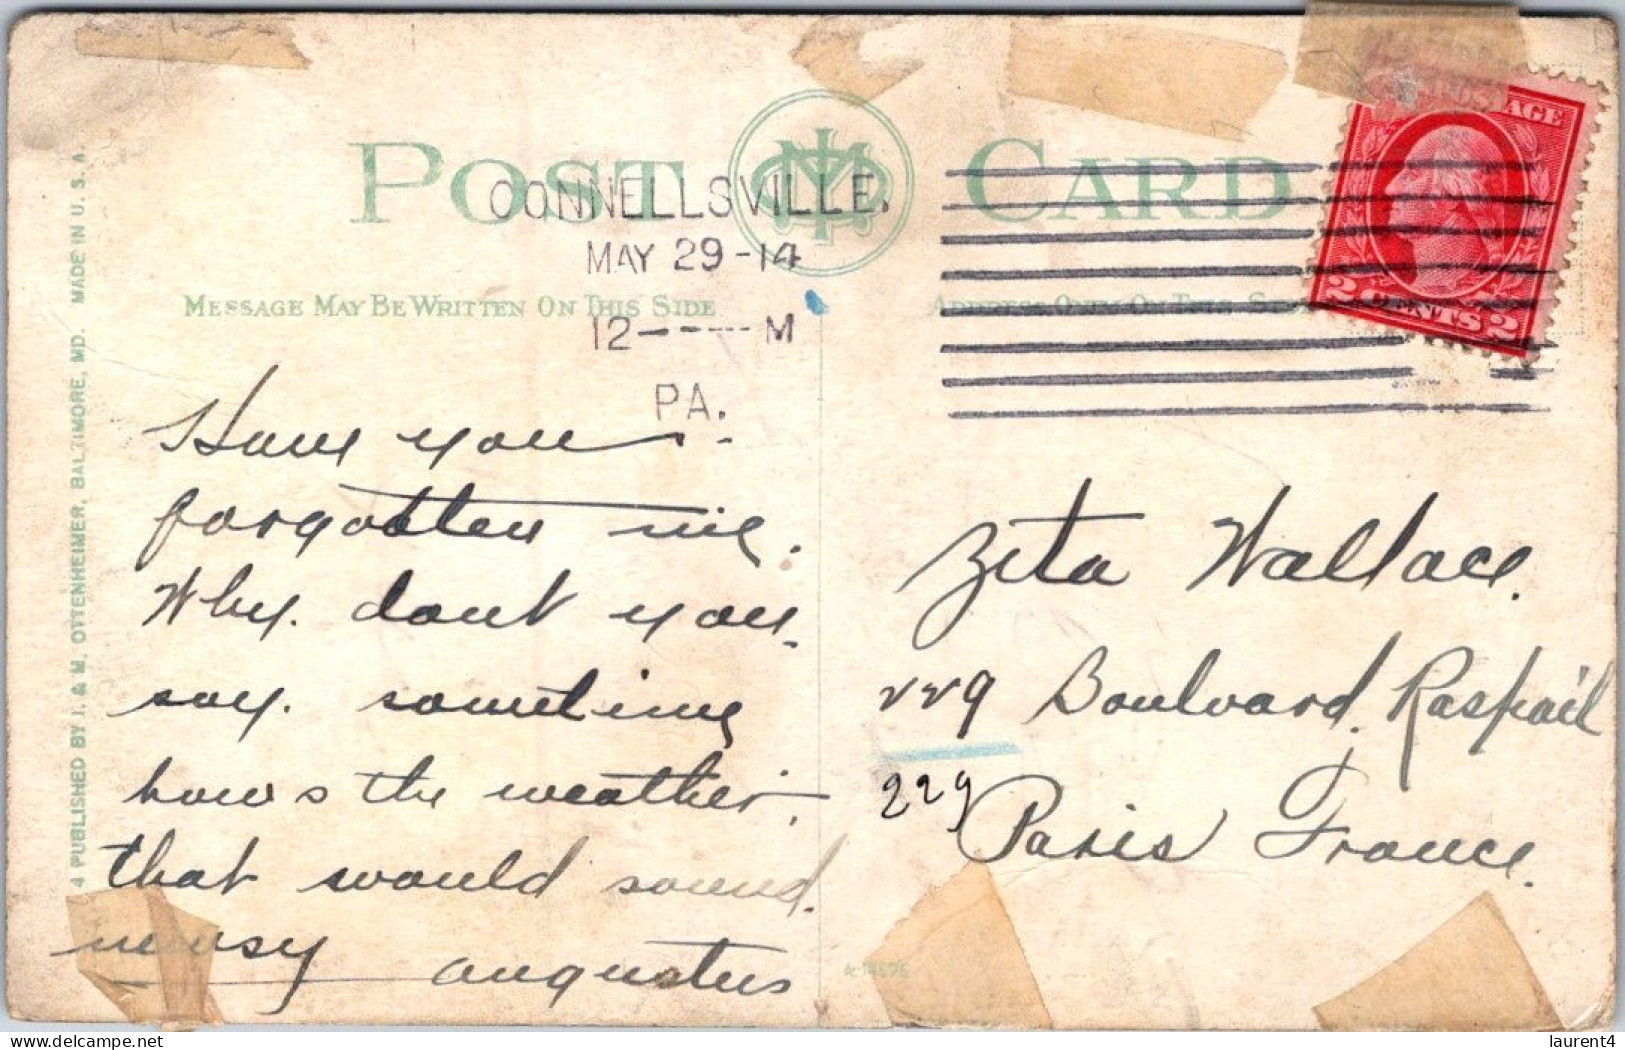 POST CARD
CONNELLSVILLE.
MAY 29-14
12-----M
PA.
MESSAGE MAY BE WRITTEN ON THIS SIDE
ADDRESS ONLY ON THIS SIDE
AGE
2 CENTS 2
4 PUBLISHED BY I. & M. OTTENHEIMER, BALTIMORE, MD. MADE IN U. S. A.
Have you
forgotten me.
Why. dont you
say. sometime
hows the weather.
that would sound.
newsy augustus
Zita Wallace.
229 Boulvard. Raspail
229
Paris France.
laurent4